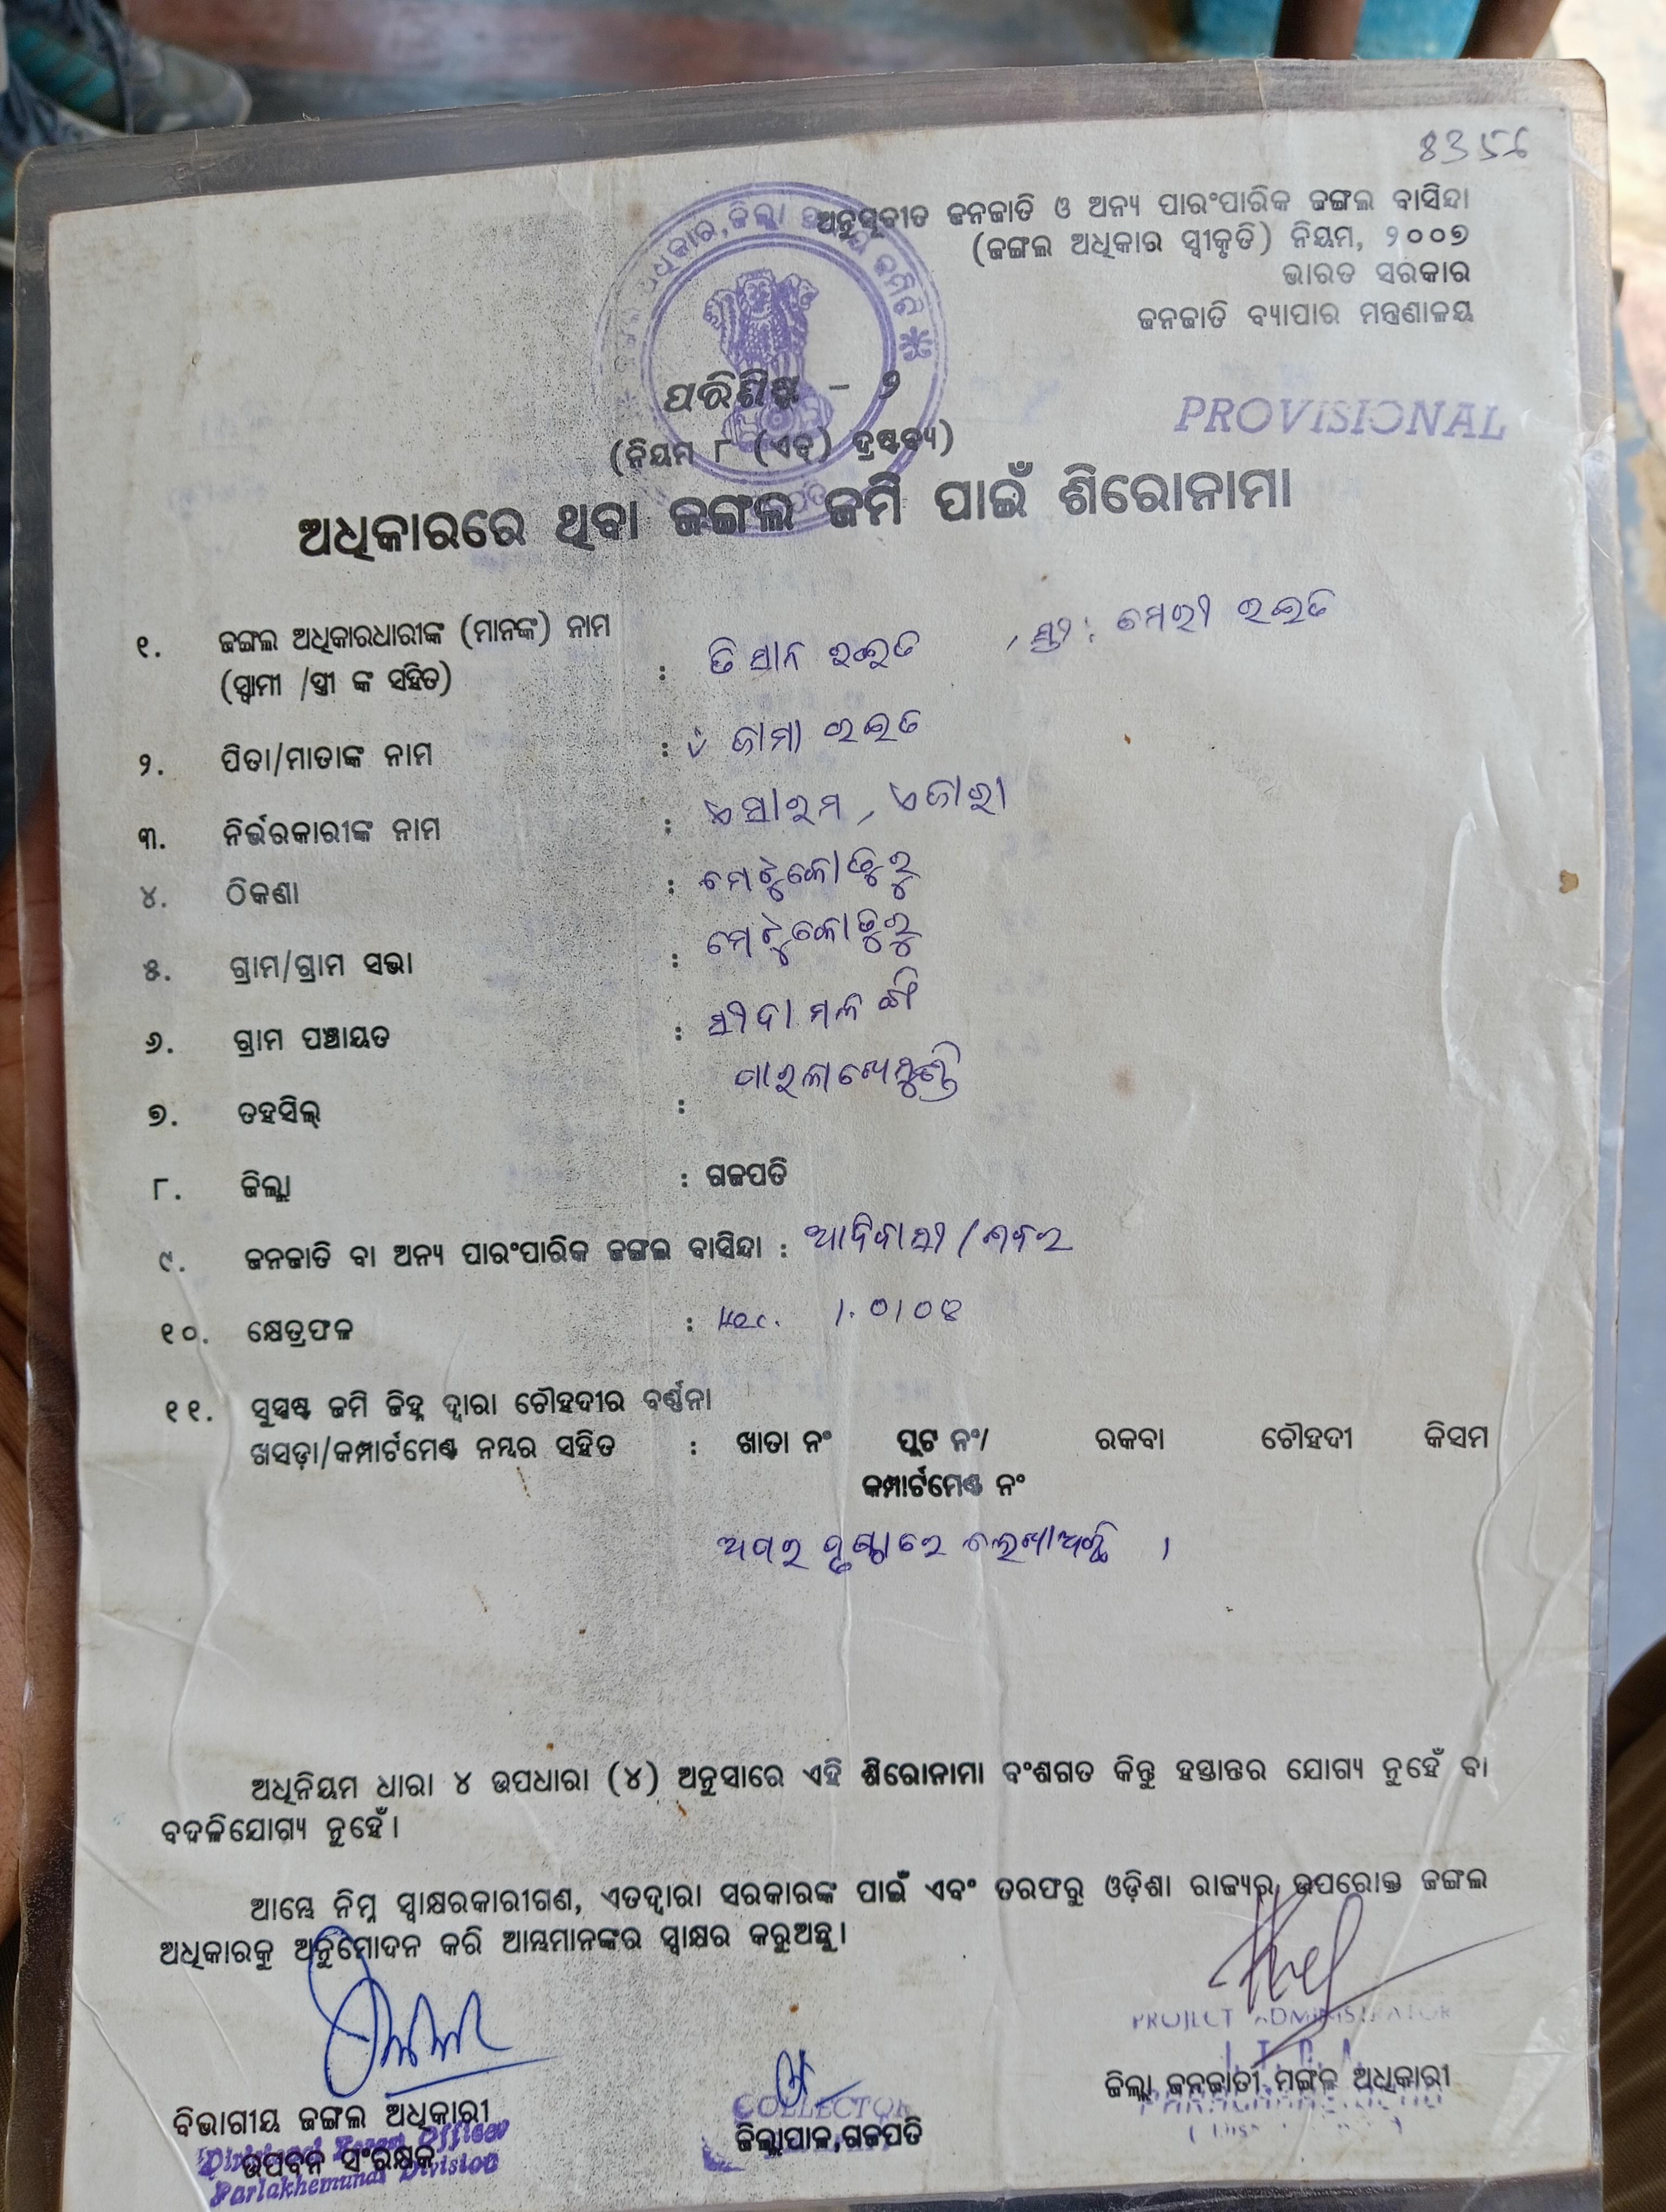 ଅନୁସୂଚୀତ ଜନଜାତି ଓ ଅନ୍ୟ ପାରଂପାରିକ ଜଙ୍ଗଲ ବାସିନ୍ଦା
(ଜଙ୍ଗଲ ଅଧିକାର ସ୍ୱୀକୃତି) ନିୟମ, ୨୦୦୭
ଭାରତ ସରକାର
ଜନଜାତି ବ୍ୟାପାର ମନ୍ତ୍ରଣାଳୟ
PROVISIONAL
ପରିଶିଷ୍ଟ - ୨
(ନିୟମ ୮ (ଏଚ୍) ଦ୍ରଷ୍ଟବ୍ୟ)
ଅଧିକାରରେ ଥିବା ଜଙ୍ଗଲ ଜମି ପାଇଁ ଶିରୋନାମା
୧. ଜଙ୍ଗଲ ଅଧିକାରଧାରୀଙ୍କ (ମାନଙ୍କ) ନାମ
(ସ୍ୱାମୀ /ସ୍ତ୍ରୀ ଙ୍କ ସହିତ) : ରଇତ , ସ୍ତ୍ରୀ: ମେରୀ ରଇତ
୨. ପିତା/ମାତାଙ୍କ ନାମ : ଜାମା ରଇତ
୩. ନିର୍ଭରକାରୀଙ୍କ ନାମ :
୪. ଠିକଣା :
୫. ଗ୍ରାମ/ଗ୍ରାମ ସଭା :
୬. ଗ୍ରାମ ପଞ୍ଚାୟତ :
୭. ତହସିଲ୍ : ପାରଳାଖେମୁଣ୍ଡି
୮. ଜିଲ୍ଲା : ଗଜପତି
୯. ଜନଜାତି ବା ଅନ୍ୟ ପାରଂପାରିକ ଜଙ୍ଗଲ ବାସିନ୍ଦା : ଆଦିବାସୀ / ଶବର
୧୦. କ୍ଷେତ୍ରଫଳ : Hec. 1.0108
୧୧. ସୁସ୍ପଷ୍ଟ ଜମି ଜିହ୍ନ ଦ୍ୱାରା ଚୌହଦୀର ବର୍ଣ୍ଣନା
ଖସଡ଼ା/କମ୍ପାର୍ଟମେଣ୍ଟ ନମ୍ବର ସହିତ : ଖାତା ନଂ ପ୍ଲଟ ନଂ/ ରକବା ଚୌହଦୀ କିସମ
କମ୍ପାର୍ଟମେଣ୍ଟ ନଂ
ଅପର ପୃଷ୍ଠାରେ ଲେଖାଅଛି ।
ଅଧିନିୟମ ଧାରା ୪ ଉପଧାରା (୪) ଅନୁସାରେ ଏହି ଶିରୋନାମା ବଂଶଗତ କିନ୍ତୁ ହସ୍ତାନ୍ତର ଯୋଗ୍ୟ ନୁହେଁ ବା
ବଦଳିଯୋଗ୍ୟ ନୁହେଁ।
ଆମ୍ଭେ ନିମ୍ନ ସ୍ୱାକ୍ଷରକାରୀଗଣ, ଏତଦ୍ୱାରା ସରକାରଙ୍କ ପାଇଁ ଏବଂ ତରଫରୁ ଓଡ଼ିଶା ରାଜ୍ୟର ଉପରୋକ୍ତ ଜଙ୍ଗଲ
ଅଧିକାରକୁ ଅନୁମୋଦନ କରି ଆମ୍ଭମାନଙ୍କର ସ୍ୱାକ୍ଷର କରୁଅଛୁ।
PROJECT ADMINISTRATOR
ଜିଲ୍ଲା ଜନଜାତୀ ମଙ୍ଗଳ ଅଧିକାରୀ
COLLECTOR
ଜିଲ୍ଲାପାଳ,ଗଜପତି
ବିଭାଗୀୟ ଜଙ୍ଗଲ ଅଧିକାରୀ
Divisional Forest Officer
ଉପବନ ସଂରକ୍ଷକ
Parlakhemundi Division